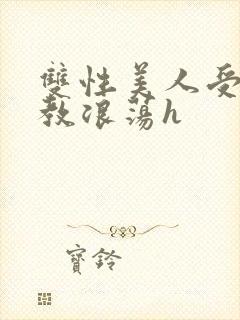 雙性美人受
教浪蕩h
寶鈴